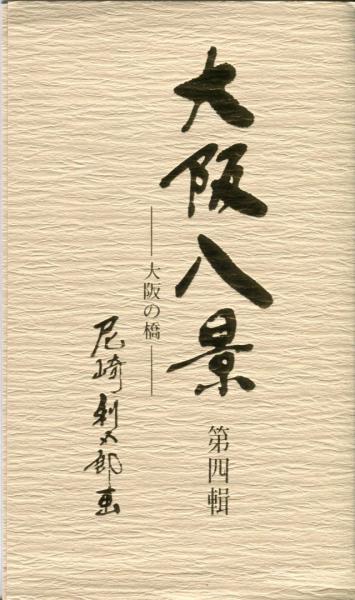 大阪八景
第四輯
―大阪の橋―
尼崎利太郎画